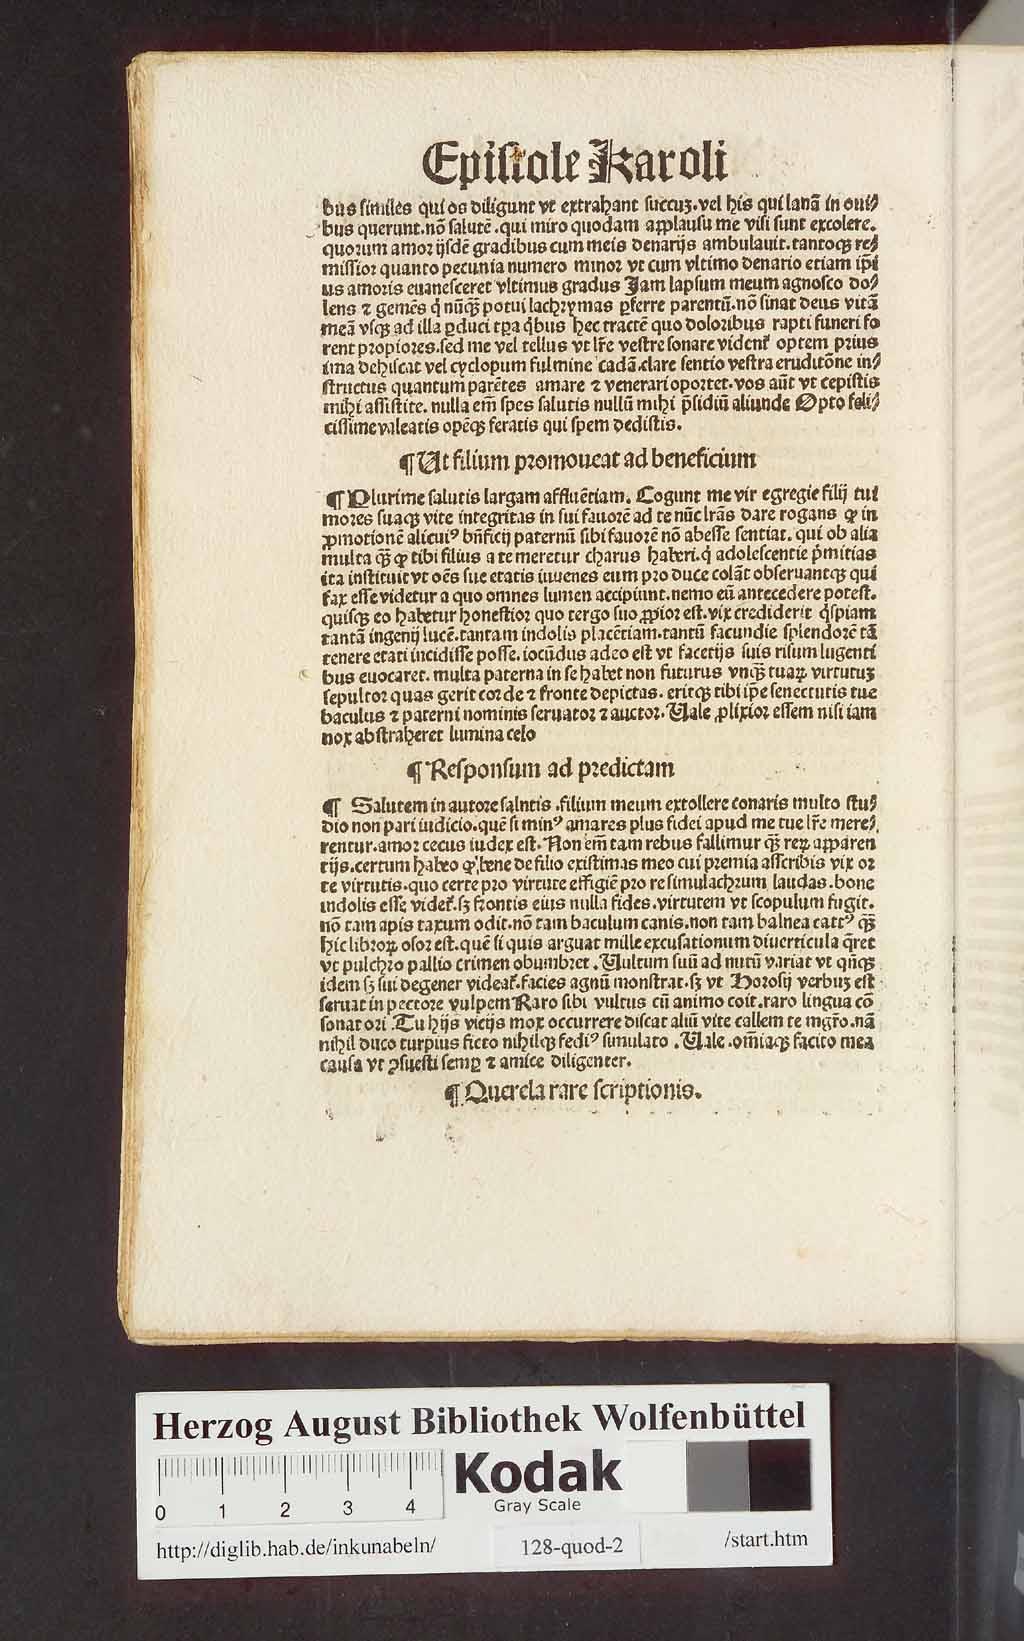 Epistole Karoli
bus similes qui os diligunt vt extrahant succuꝫ. vel his qui lanā in oui⸗
bus querunt. nō salutē. qui miro quodam applausu me visi sunt excolere.
quorum amor ijsdē gradibus cum meis denarijs ambulauit. tantoqꝫ re⸗
missior quanto pecunia numero minor vt cum vltimo denario etiam ip̄i
us amoris euanesceret vltimus gradus Jam lapsum meum agnosco do⸗
lens ⁊ gemēs q̇ nūqꝫ̄ potui lachrymas ꝑferre parentū. nō sinat deus vitā
meā vsqꝫ ad illa ꝑduci tꝑa q̇bus hec tractē quo doloribus rapti funeri fo
rent propiores. sed me vel tellus vt lr̄e vestre sonare vident᷑ optem prius
ima dehiscat vel cyclopum fulmine cadā. clare sentio vestra eruditōne in⸗
structus quantum parētes amare ⁊ venerari oportet. vos aūt vt cepistis
mihi assistite. nulla em̄ spes salutis nullū mihi p̄sidiū aliunde Opto feli⸗
cissime valeatis opēqꝫ feratis qui spem dedistis.
¶ Ut filium promoueat ad beneficium
¶ Plurime salutis largam affluētiam. Cogunt me vir egregie filij tui
mores suaqꝫ vite integritas in sui fauorē ad te nūc lr̄as dare rogans ꝙ in
ꝓmotionē alicuiꝰ bn̄ficij paternū sibi fauorē nō abesse sentiat. qui ob alia
multa qꝫ̄ ꝙ tibi filius a te meretur charus haberi. q̇ adolescentie p̄mitias
ita instituit vt oēs sue etatis iuuenes eum pro duce colāt obseruantqꝫ qui
fax esse videtur a quo omnes lumen accipiunt. nemo eū antecedere potest.
quisqꝫ eo habetur honestior quo tergo suo ꝓpior est. vix crediderit q̇spiam
tantā ingenij lucē. tantam indolis placētiam. tantū facundie splendorē tā
tenere etati incidisse posse. iocūdus adeo est vt facetijs suis risum lugenti
bus euocaret. multa paterna in se habet non futurus vnqꝫ̄ tuaꝝ virtutuꝫ
sepultor quas gerit corde ⁊ fronte depictas. eritqꝫ tibi ip̄e senectutis tue
baculus ⁊ paterni nominis seruator ⁊ auctor. Uale ꝓlixior essem nisi iam
nox abstraheret lumina celo
¶ Responsum ad predictam
¶ Salutem in autore salntis . filium meum extollere conaris multo stu⸗
dio non pari iudicio. quē si minꝰ amares plus fidei apud me tue lr̄e mere⸗
rentur. amor cecus iudex est. Non em̄ tam rebus fallimur qꝫ̄ reꝝ apparen
tijs. certum habeo ꝙ bene de filio existimas meo cui premia asscribis vix or
te virtutis. quo certe pro virtute effigiē pro re simulachrum laudas. bone
indolis esse videt᷑. sꝫ frontis eius nulla fides. virtutem vt scopulum fugit.
nō tam apis taxum odit. nō tam baculum canis. non tam balnea cattꝰ qꝫ̄
hic libroꝝ osor est. quē si quis arguat mille excusationum diuerticula q̄ret
vt pulchro pallio crimen obumbret . Uultum suū ad nutū variat vt qn̄qꝫ
idem sꝫ sui degener videat᷑. facies agnū monstrat. sꝫ vt Horosij verbuꝫ est
seruat in pectore vulpem Raro sibi vultus cū animo coit. raro lingua cō
sonat ori . Tu hijs vicijs mox occurrere discat aliū vite callem te mgr̄o. nā
nihil duco turpius ficto nihilqꝫ fediꝰ simulato . Uale . om̄iaqꝫ facito mea
causa vt ꝯsuesti semꝑ ⁊ amice diligenter.
¶ Querela rare scriptionis.
Herzog August Bibliothek Wolfenbüttel
Kodak
Gray Scale
0 1 2 3 4
http://diglib.hab.de/inkunabeln/ 128-quod-2 /start.htm